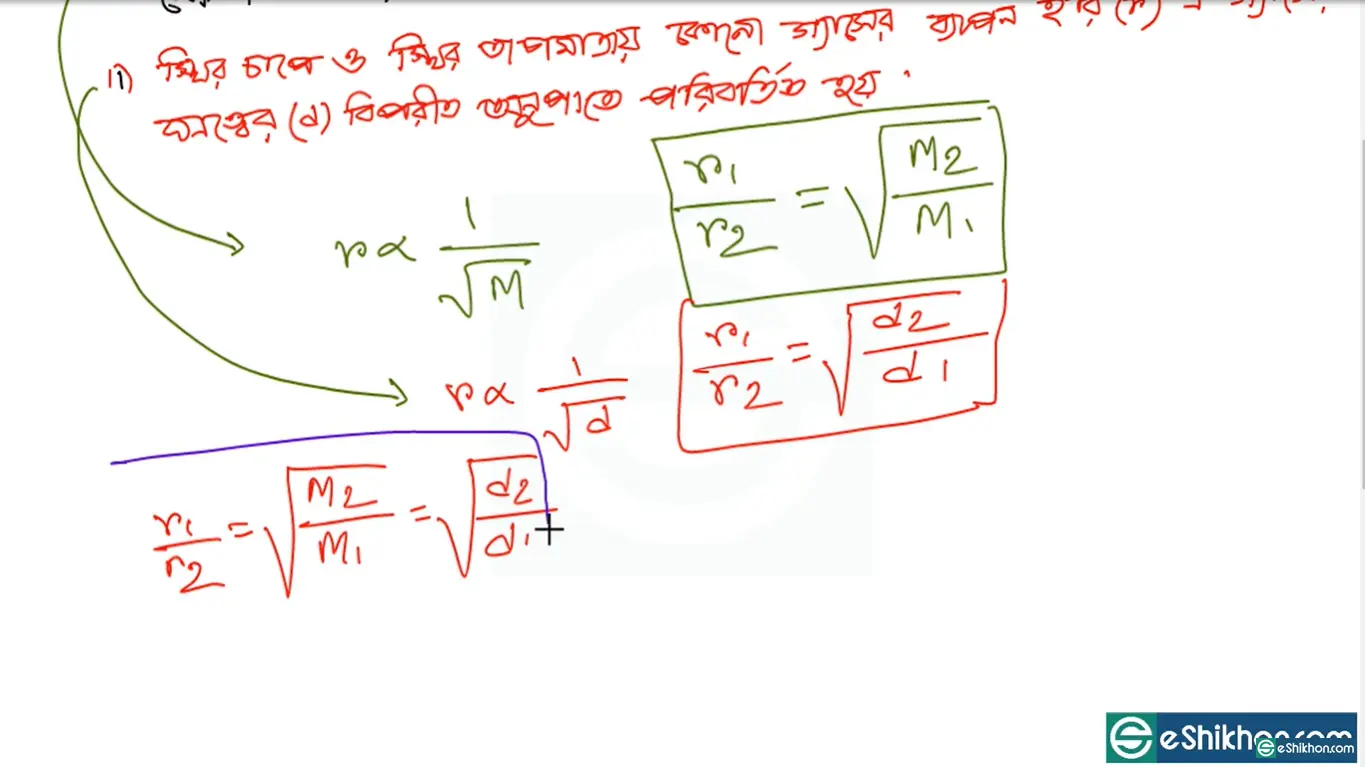 ii) স্থির চাপে ও স্থির তাপমাত্রায় কোনো গ্যাসের ব্যাপন হার (r)
ঘনত্বের (d) বিপরীত অনুপাতে পরিবর্তিত হয়
r ∝ 1/√M
r1/r2 = √(M2/M1)
r ∝ 1/√d
r1/r2 = √(d2/d1)
r1/r2 = √(M2/M1) = √(d2/d1)
eShikhon.com
eShikhon.com